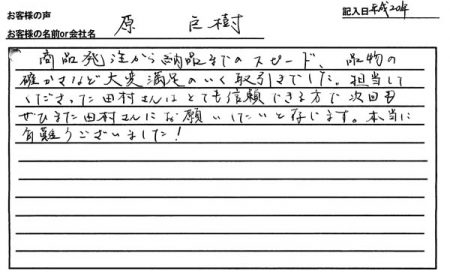 お客様の声
記入日平成20年
お客様の名前or会社名 原 巨樹
商品発注から納品までのスピード、品物の
確かさなど大変満足のいく取引きでした。担当して
くださった田村さんはとても信頼できる方で次回も
ぜひまた田村さんにお願いしたいと存じます。本当に
有難うございました!